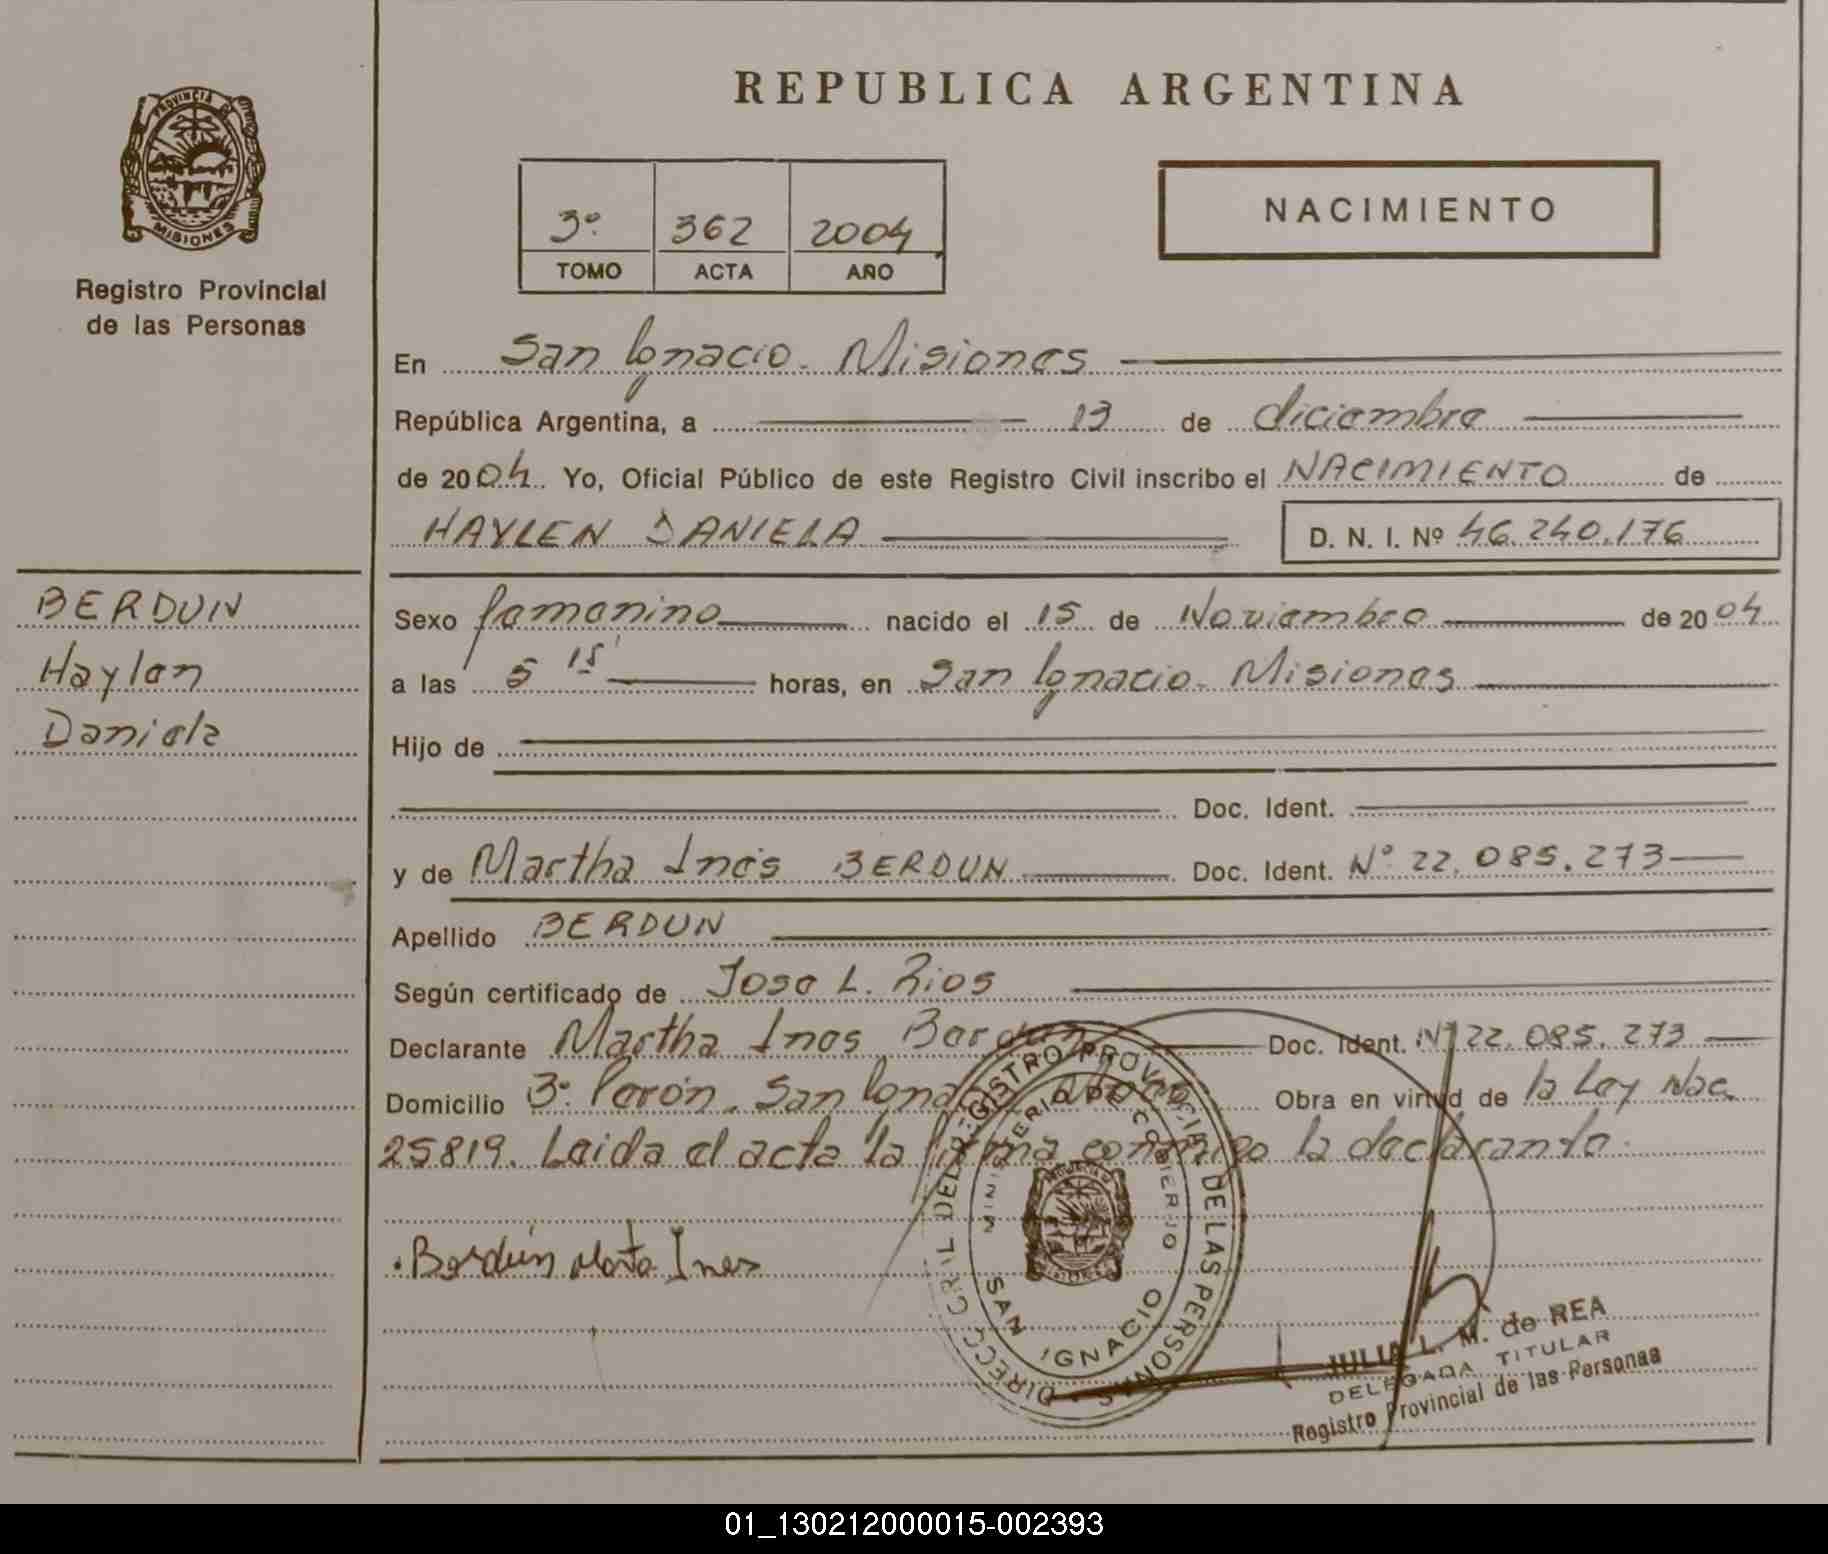 REPUBLICA ARGENTINA
PROVINCIA DE
MISIONES
Registro Provincial
de las Personas
3º 362 2004
TOMO ACTA AÑO
NACIMIENTO
En San Ignacio. Misiones
República Argentina, a 13 de diciembre
de 2004. Yo, Oficial Público de este Registro Civil inscribo el NACIMIENTO de
HAYLEN DANIELA D. N. I. Nº 46.240.176
BERDUN
Haylen
Daniela
Sexo femenino nacido el 15 de Noviembre de 2004
a las 5 15' horas, en San Ignacio. Misiones
Hijo de
Doc. Ident.
y de Martha Inés BERDUN Doc. Ident. Nº 22.085.273
Apellido BERDUN
Según certificado de Jose L. Rios
Declarante Martha Ines Berdun Doc. Ident. Nº 22.085.273
Domicilio 3º Perón. San Ignacio Obra en virtud de la Ley Nac.
25819. Leida el acta la firma conmigo la declarante.
.Berdún Marta Ines
DIRECC. GRAL. DEL REGISTRO PROVINCIAL DE LAS PERSONAS
MINISTERIO DE GOBIERNO
SAN IGNACIO
JULIA L. M. de REA
DELEGADA TITULAR
Registro Provincial de las Personas
01_130212000015-002393